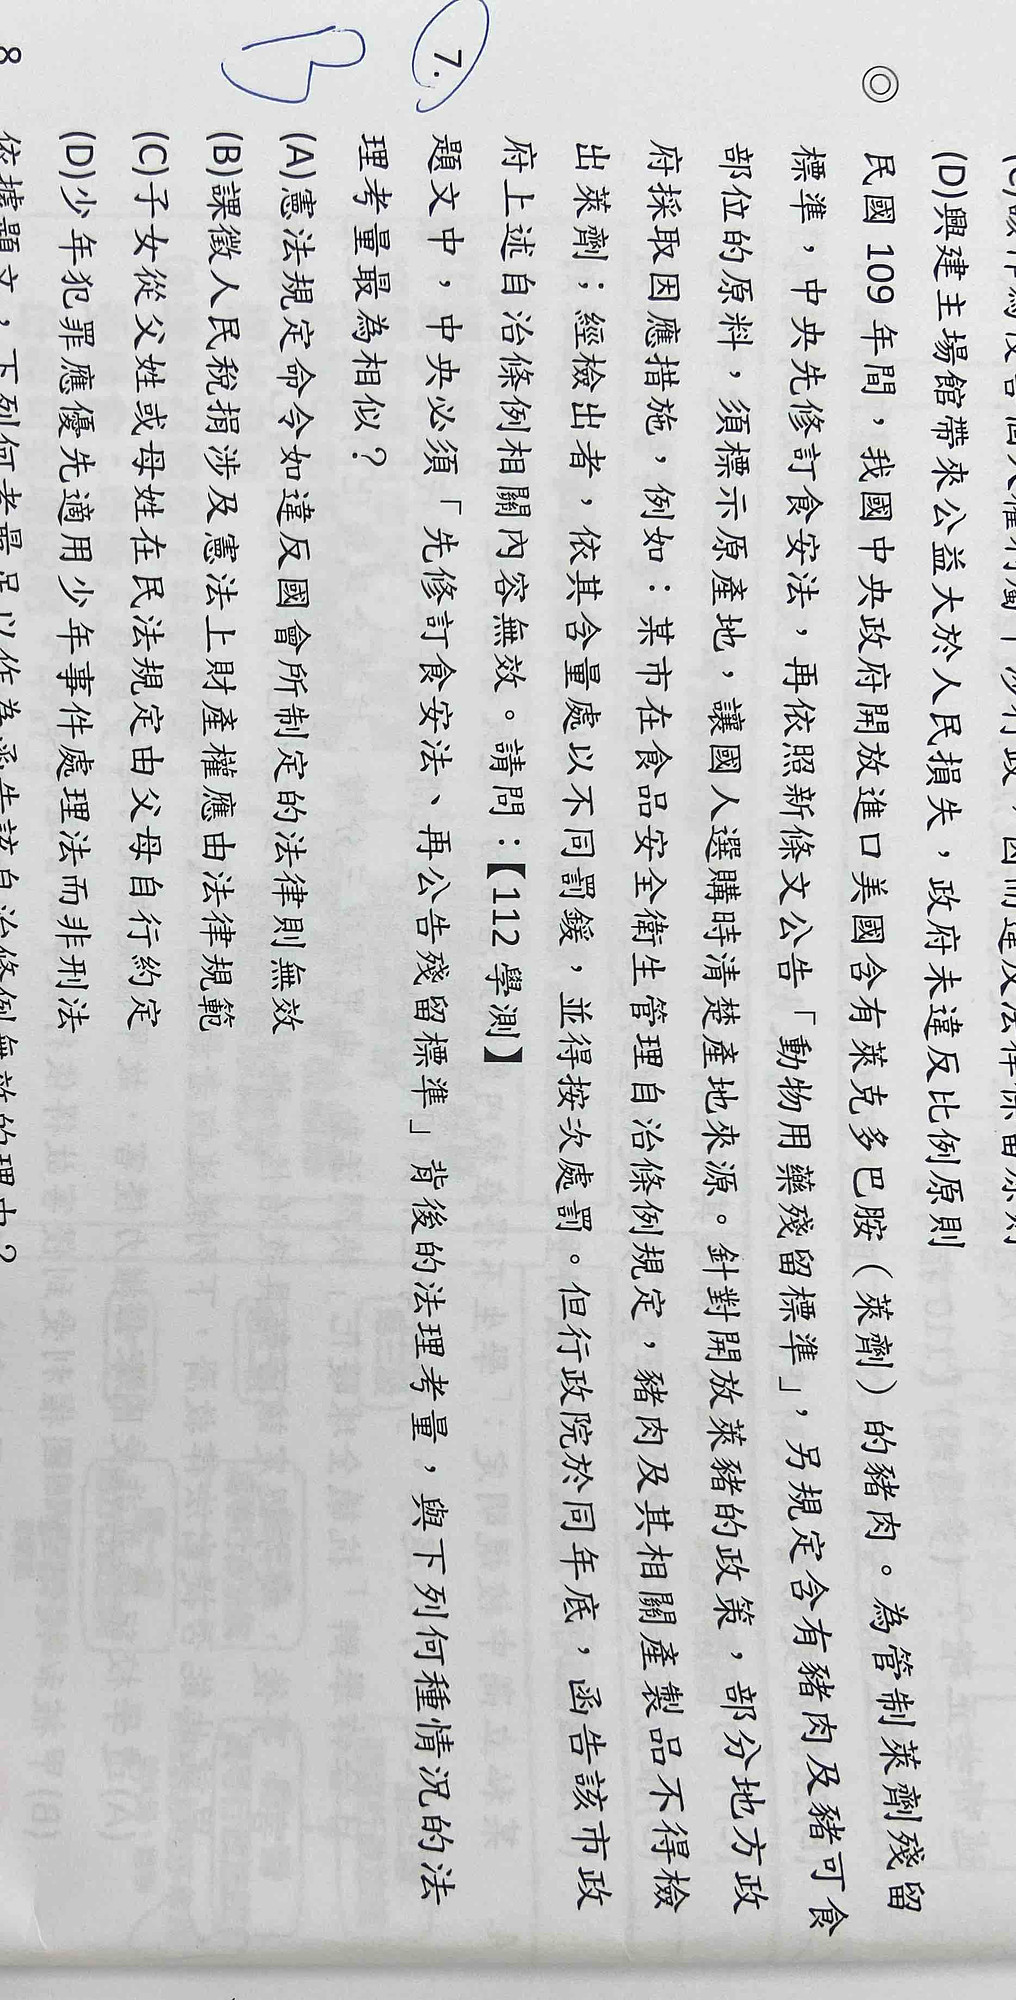 (D)興建主場館帶來公益大於人民損失，政府未違反比例原則
◎ 民國 109 年間，我國中央政府開放進口美國含有萊克多巴胺（萊劑）的豬肉。為管制萊劑殘留
標準，中央先修訂食安法，再依照新條文公告「動物用藥殘留標準」，另規定含有豬肉及豬可食
部位的原料，須標示原產地，讓國人選購時清楚產地來源。針對開放萊豬的政策，部分地方政
府採取因應措施，例如：某市在食品安全衛生管理自治條例規定，豬肉及其相關產製品不得檢
出萊劑；經檢出者，依其含量處以不同罰鍰，並得按次處罰。但行政院於同年底，函告該市政
府上述自治條例相關內容無效。請問：【112 學測】
7. 題文中，中央必須「先修訂食安法、再公告殘留標準」背後的法理考量，與下列何種情況的法
理考量最為相似？
(A)憲法規定命令如違反國會所制定的法律則無效
B
(B)課徵人民稅捐涉及憲法上財產權應由法律規範
(C)子女從父姓或母姓在民法規定由父母自行約定
(D)少年犯罪應優先適用少年事件處理法而非刑法
8 依據題文，下列何者最足以作為函告該自治條例無效的理由？